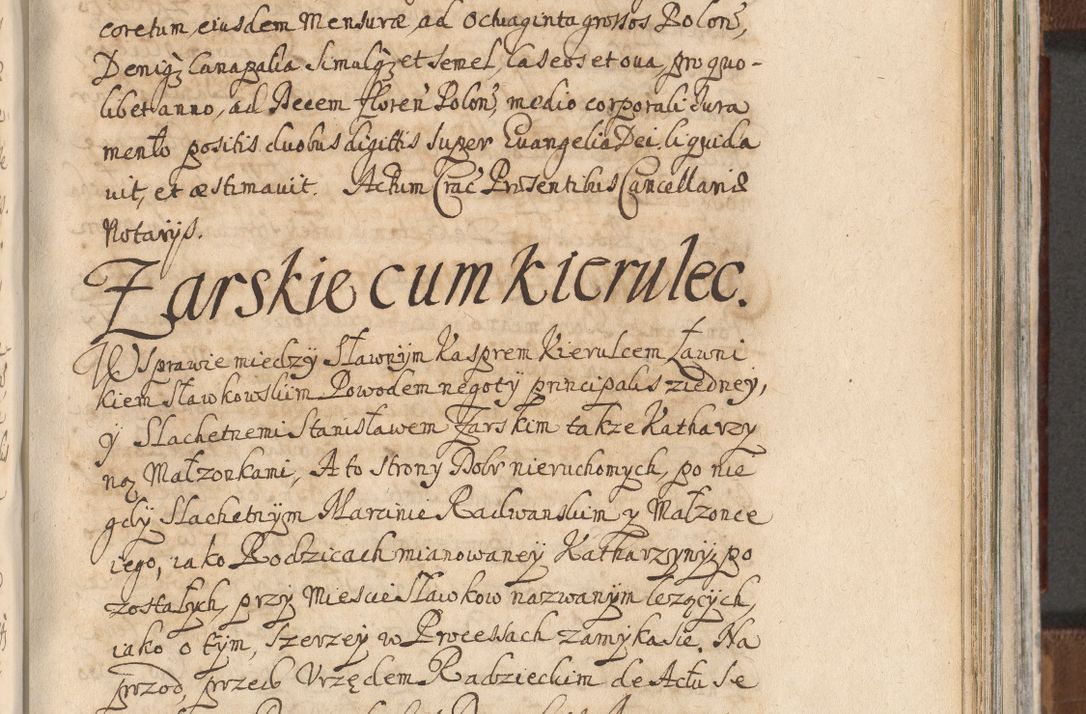 coretum eiusdem Mensuræ ad Octuaginta grossos Polon,
Deniq Canapalia Simulq et semel, Caseos et oua, pro quo-
libet anno, ad Decem Floren Polon, medio corporali iura
mento positis duobus digittis super Euangelia Dei, liquida
uit, et æstimauit. Actum Crac Præsentibus Cancellariæ
Notarijs.
Zarskie cum Kierulec.
W Sprawie między Sławnÿm Kasprem Kierulcem Ławni
kiem Sławkowskim Powodem negotÿ principalis z iedney,
ÿ Slachetnemi Stanisławem Zarskim także Katharzy
ną Małzonkami, A to strony Dobr nieruchomych, po nie
gdÿ Slachetnÿm Marcinie Radwanskim y Małzonce
iego, iako Rodzicach mianowaneÿ Katharzynÿ, po
zostałych, przy Mieście Sławkow nazwanym leżących,
iako o tym, szerzey w Processach zamyka sie. Na
przod, przed Vrzędem Radzieckim de Actu Se